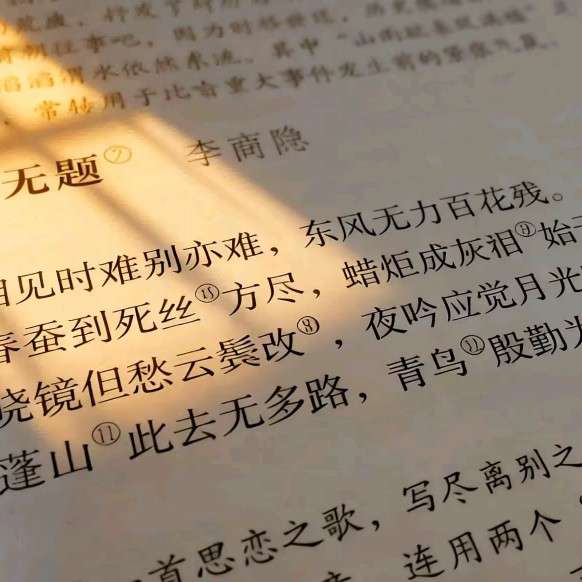 滔滔渭水依然东流。其中“山雨欲来风满楼”
，常转用于比喻重大事件发生前的紧张气氛。
无题⑦ 李商隐
相见时难别亦难，东风无力百花残。
春蚕到死丝⑮方尽，蜡炬成灰泪⑨始
晓镜但愁云鬓改⑧，夜吟应觉月光
蓬山⑪此去无多路，青鸟⑩殷勤
首思恋之歌，写尽离别之
连用两个